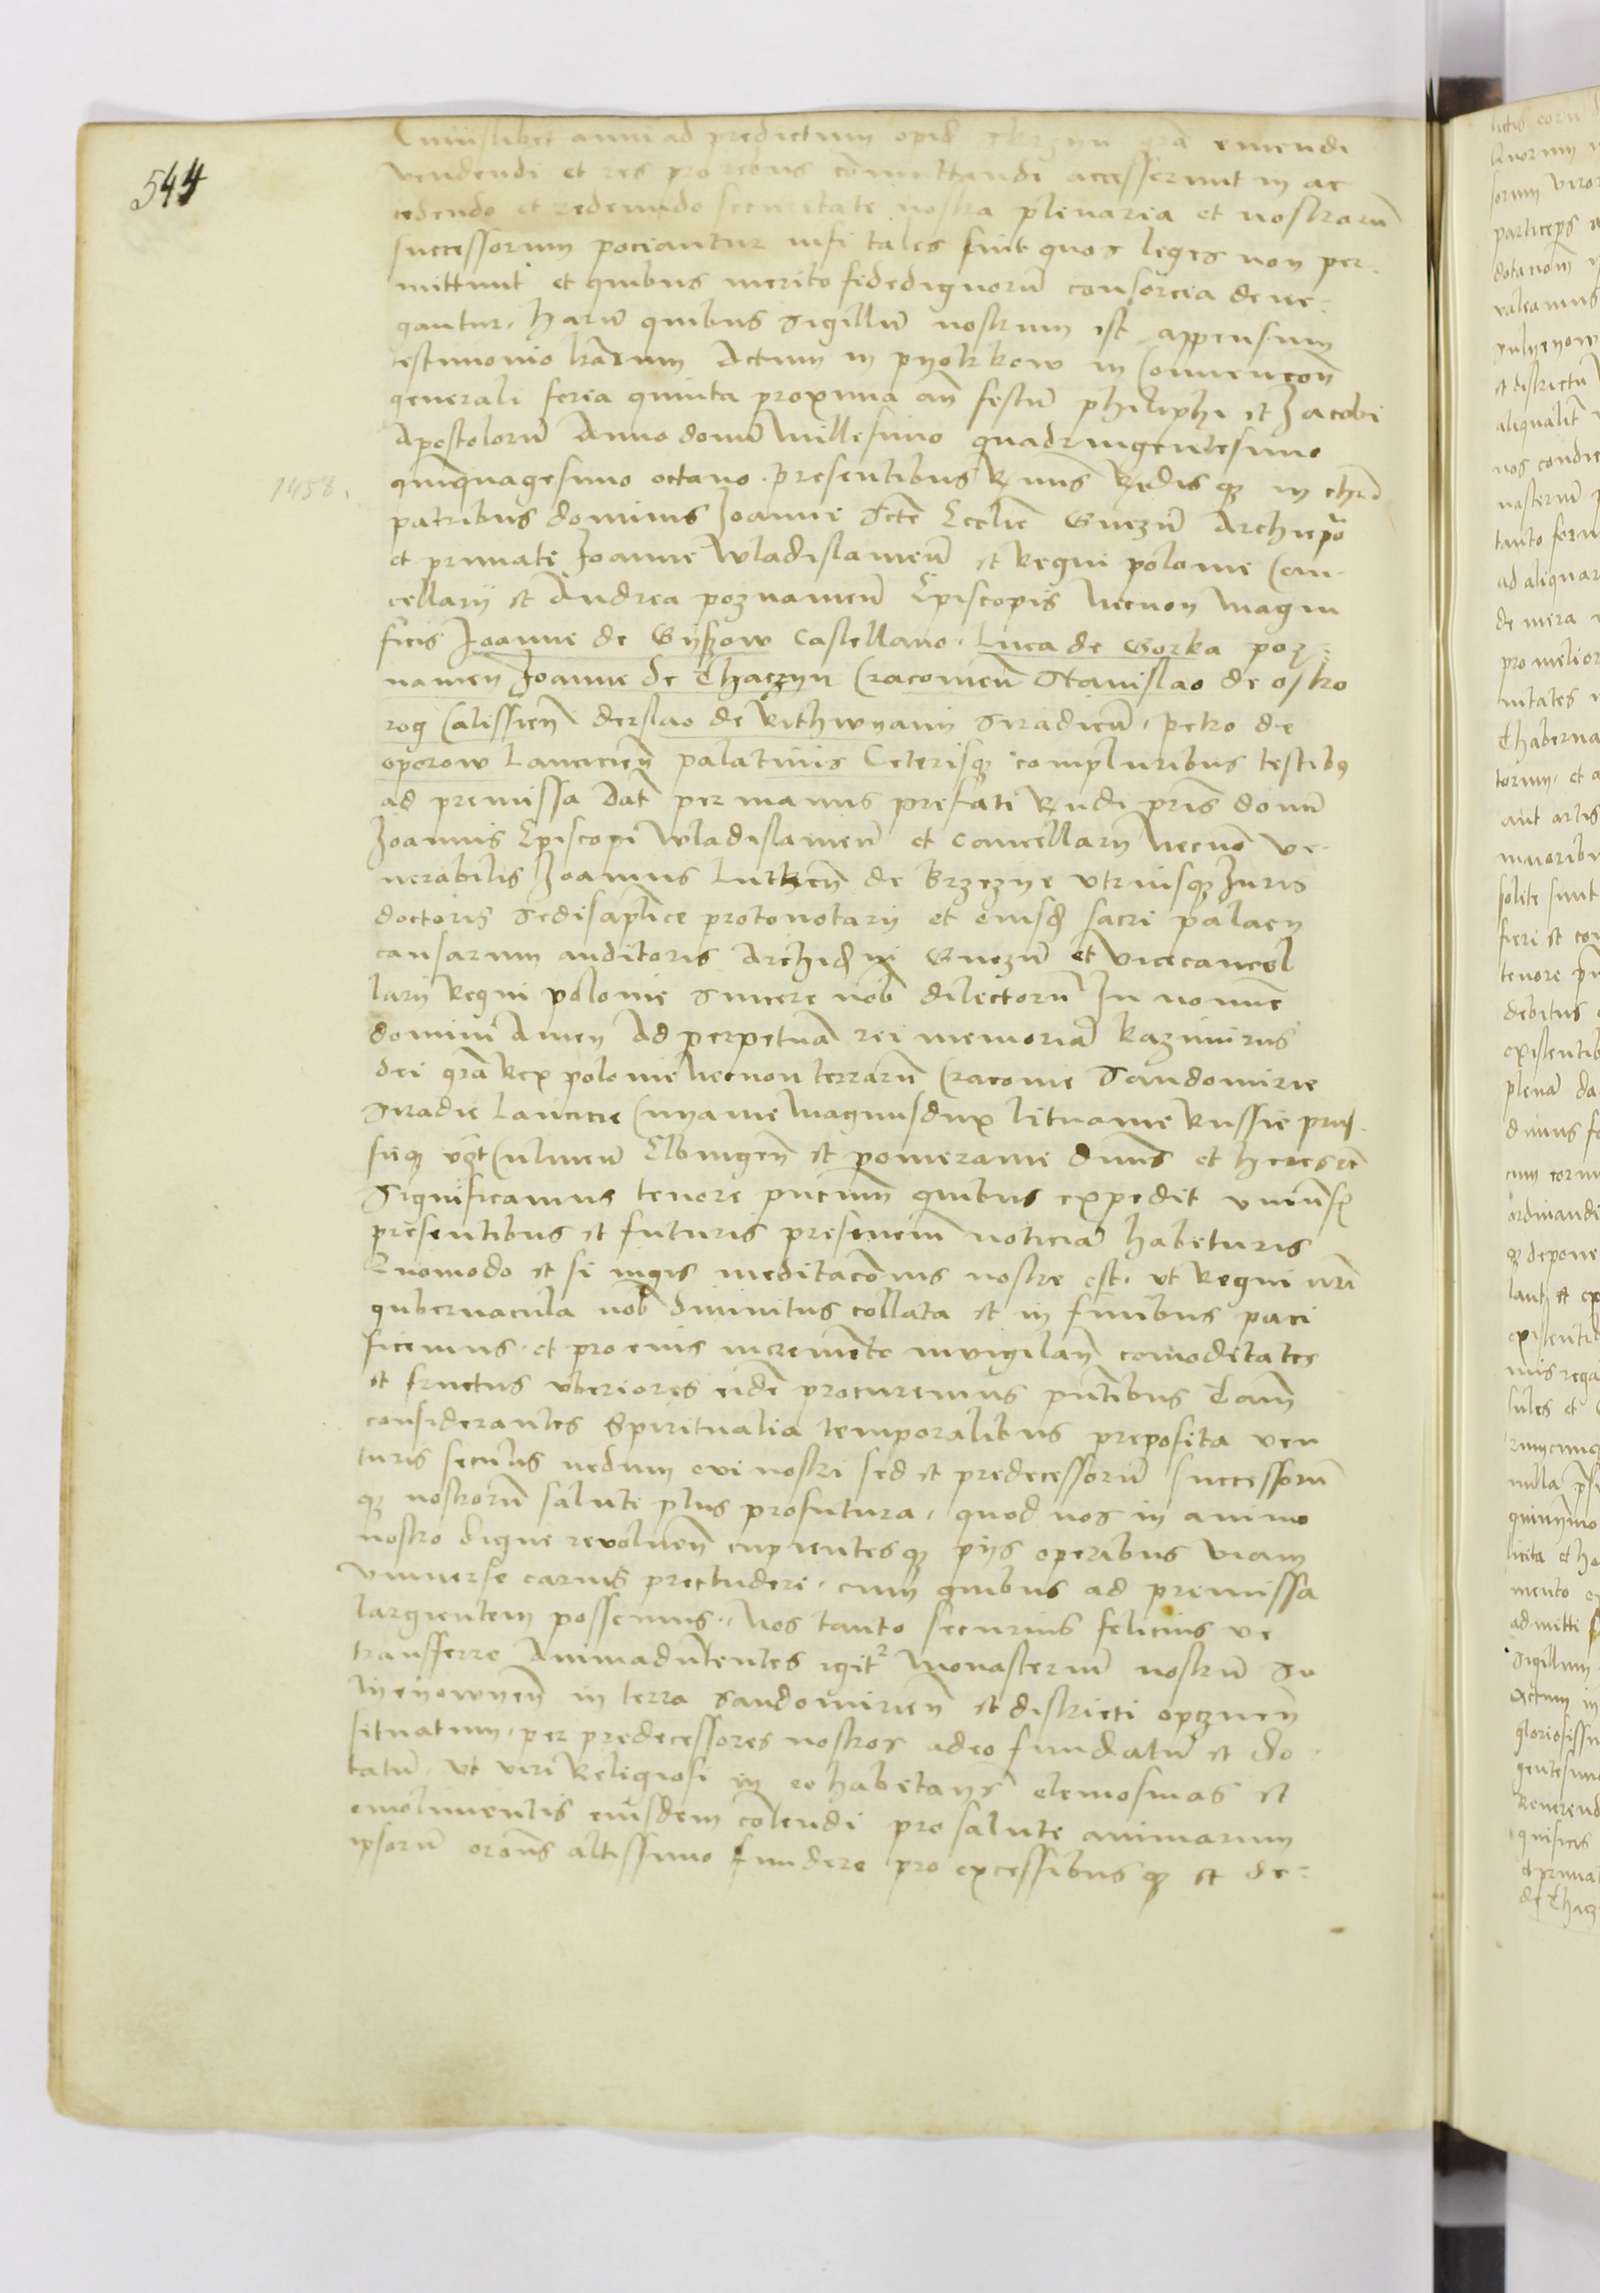 544
Cuiuslibet anni ad predictum opid gra emendi
vendendi et res pro rebus comuttandi accesserunt in ac
cedendo et redeundo securitate nostra plenaria et nostrorum
successorum pociantur nisi tales sint quos leges non per-
mittunt et quibus merito fidedignorũ consorcia dene-
gantur, harũ quibus Sigillũ nostrum est appensum
testimonio lrarum Actum in pyotrkow in Convencoñ
generali feria quinta proxima añ festũ philiphi et Jacobi
Apostolorũ Anno domi Millesimo quadringentesimo
1458.
quinquagesimo octavo. presentibus Rmis Rndis qz in chrõ
patribus dominis Joanne Scte Ecclie Gneznẽ Archiepo
et primate Joanne Wladislauieñ et Regni polonie Can-
cellarij et Andrea poznanieñ Episcopis Necnon Magni
ficis Joanne de Cyzow Castellano. Luca de Gorka poz-
nanien Joanne de Thaczyn Cracouieñ Stanislao de ostro
rog Calissieñ derslao de Rithwyany Siradieñ, petro de
oporow Lancicieñ palatinis Ceterisqz compluribus testibq
ad premissa Dat per manus prefati Rndi pris domi
Joannis Episcopi Wladislauieñ et Cancellarij Necno ve-
nerabilis Joannis Lutkeñ de Brzezye vtriusqz Juris
doctoris Sedis aplice protonotarij et eiusd sacri palacij
causarum auditoris Archidni Gnezñ et vicecancel
larij Regni polonie Sincere nob dilectorũ In nomine
domini Amen Ad perpetuã rei memoriã Kazimirus
dei grã Rex polonie Necnon terrarũ Cracouie Sandomirie
Siradie Lancicie Cuyauie Magnus dux lituanie Russie prus-
sieqz Culmeñ Elbingeñ et pomeranie dnus et heres etc
Significamus tenore pñtium quibus expedit vniuersis
presentibus et futuris presenciũ noticiã habituris
Quomodo et si iugis meditacõnis nostre est. vt Regni nri
gubernacula nob diuinitus collata et in finibus paci
ficemus. et pro eius incremẽto invigilañ comoditates
et fructus vberiores eidẽ procuremus pñtibus Tam
considerantes Spiritualia temporalibus preposita ven
turis seculis nedum evi nostri sed et predecessorũ successorũ
qz nostrorũ saluti plus profutura, quod nos in animo
nostro digne revolueñ cupientesqz pijs operibus viam
vniuerse carnis precludere. cum quibus ad premissa
largientem possemus. Nos tanto securius felicius ve
transferre Animaduertentes igitr Monasteriũ nostrũ Su
lyeyowyeñ in terra Sandomirieñ et districti opoznẽn
situatum. per predecessores nostros adeo fundatũ et do-
tatũ. vt viri Religiosi in eo habitans elemosinas et
emolumentis eiusdem colendi pro salute animarum
ipsorũ oroñs altissimo fundere pro excessibusqz et de-